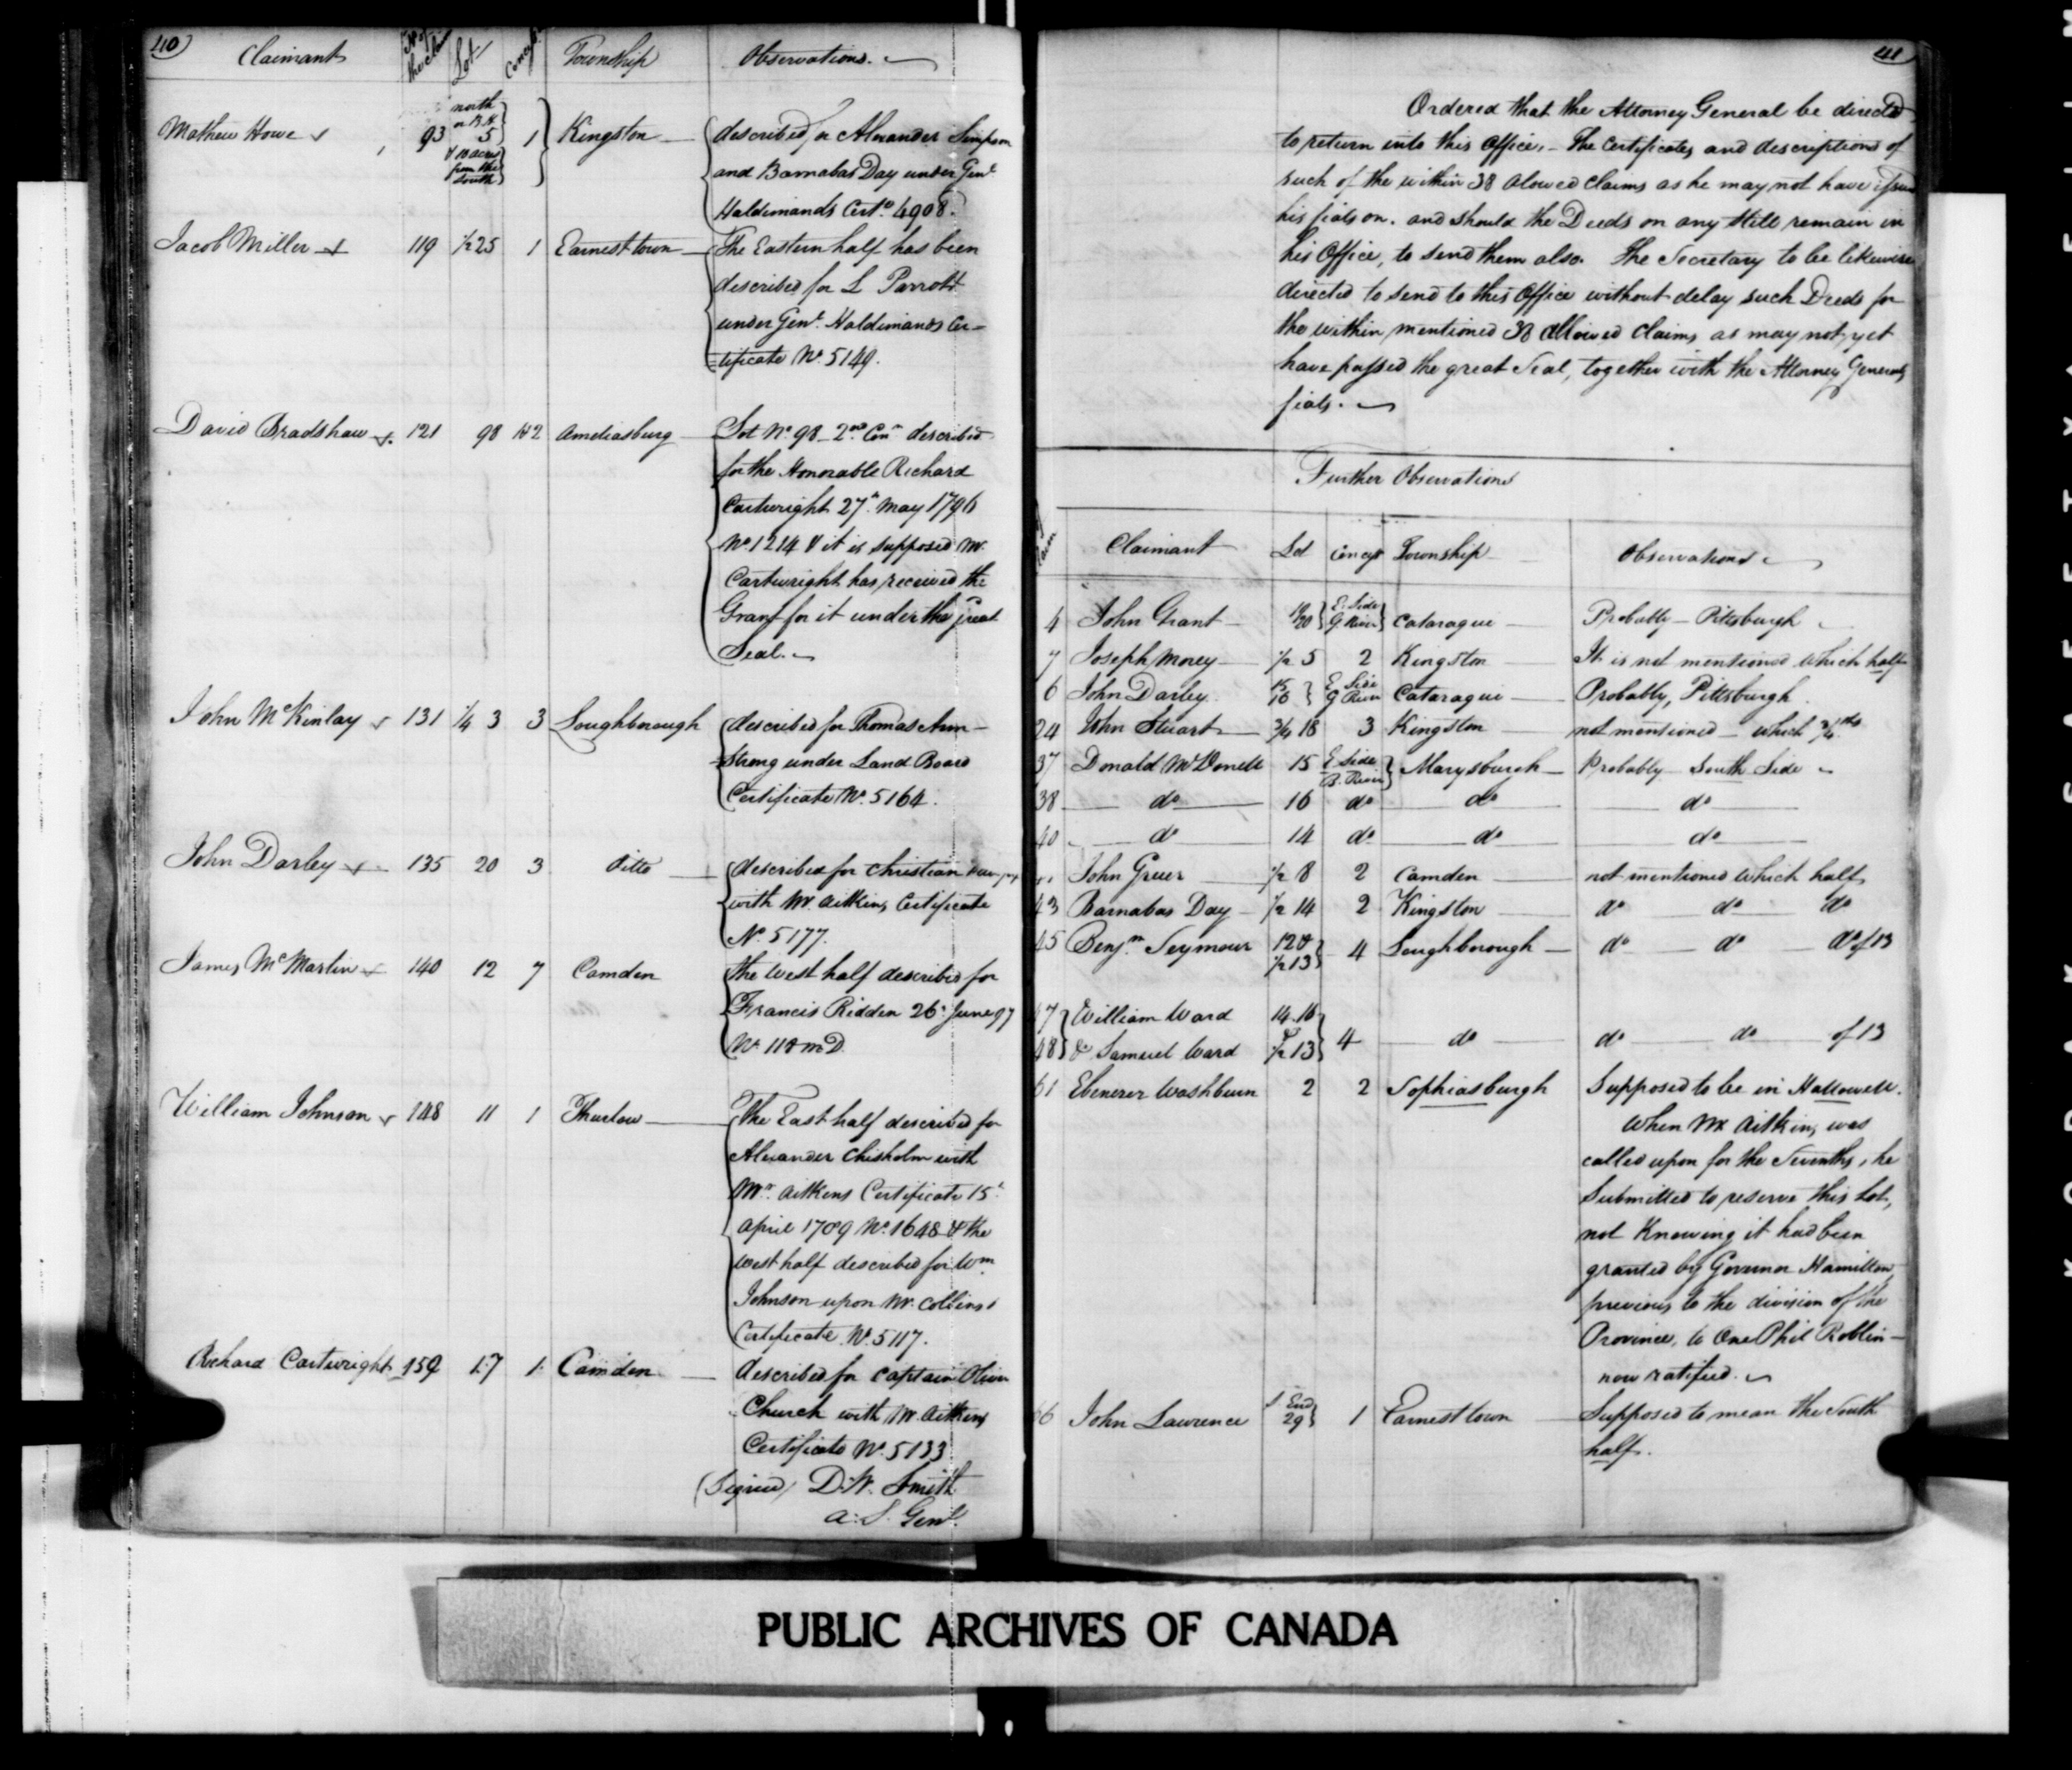 40) Claimant No. of the Claim Lot Concess. Township Observations.
Mathew Howe 93 north 5 & 10 acres from the South 1 Kingston described for Alexander Simpson
and Barnabas Day under Genl.
Haldimands Certe. 4908.
Jacob Miller 119 1/2 25 1 Earnest town The Eastern half has been
described for L Parrott
under Genl. Haldimands Cer-
tificate No. 5149.
David Bradshaw 121 98 1&2 Ameliasburg Lot No. 98 2nd Con. described
for the Honorable Richard
Cartwright 27th. May 1796
No. 1214 & it is supposed Mr.
Cartwright has received the
Grant for it under the great
Seal.
John McKinlay 131 1/4 3 3 Loughborough described for Thomas Arm-
strong under Land Board
Certificate No. 5164.
John Darley 135 20 3 ditto described for Christian
with Mr. Aitkins Certificate
No. 5177.
James McMartin 140 12 7 Camden the West half described for
Francis Ridden 26. June 97
No. 118 m D.
William Johnson 148 11 1 Thurlow The East half described for
Alexander Chisholm with
Mr. Aitkens Certificate 15t.
April 1789 No. 1648 & the
West half described for Wm.
Johnson upon Mr. Collins's
Certificate No. 5117.
Richard Cartwright 159 17 1 Camden described for Captain Oliver
Church with Mr. Aitkins
Certificate No. 5133
(Signed) D. W. Smith
A. S. Genl.
41
Ordered that the Attorney General be directed
to return into this Office, - The Certificates and descriptions of
such of the within 38 alowed Claims as he may not have issued
his fiats on. and should the Deeds on any Still remain in
his Office, to send them also. The Secretary to be likewise
directed to send to this Office without delay such Deeds for
the within mentioned 38 allowed Claims as may not yet
have passed the great Seal, together with the Attorney Generals
fiats.
Further Observations
Claim Claimant Lot Concess Township Observations
4 John Grant 19 20 E. Side G. River Cataraqui Probably - Pittsburgh
7 Joseph Morey 1/2 5 2 Kingston It is not mentioned which half
6 John Darley 15 16 E Side G River Cataraqui Probably, Pittsburgh.
24 John Stuart 3/4 18 3 Kingston not mentioned which 3/4ths
37 Donald McDonell 15 E Side B. River Marysburgh Probably South Side
38 do 16 do do do
40 do 14 do do do
John Greer 1/2 8 2 Camden not mentioned which half
43 Barnabas Day 1/2 14 2 Kingston do do do
45 Benjn. Seymour 12 & 1/2 13 4 Loughborough do do do of 13
47 William Ward 14.16
48 & Samuel Ward & 1/2 13 4 do do do of 13
61 Ebenezer Washburn 2 2 Sophiasburgh Supposed to be in Hallowell.
When Mr Aitkins was
called upon for the Sevenths, he
Submitted to reserve this Lot,
not Knowing it had been
granted by Governor Hamilton
previous to the division of the
Province, to One Phil Roblin -
now ratified.
66 John Lawrence S End 29 1 Earnest town Supposed to mean the South
half.
PUBLIC ARCHIVES OF CANADA